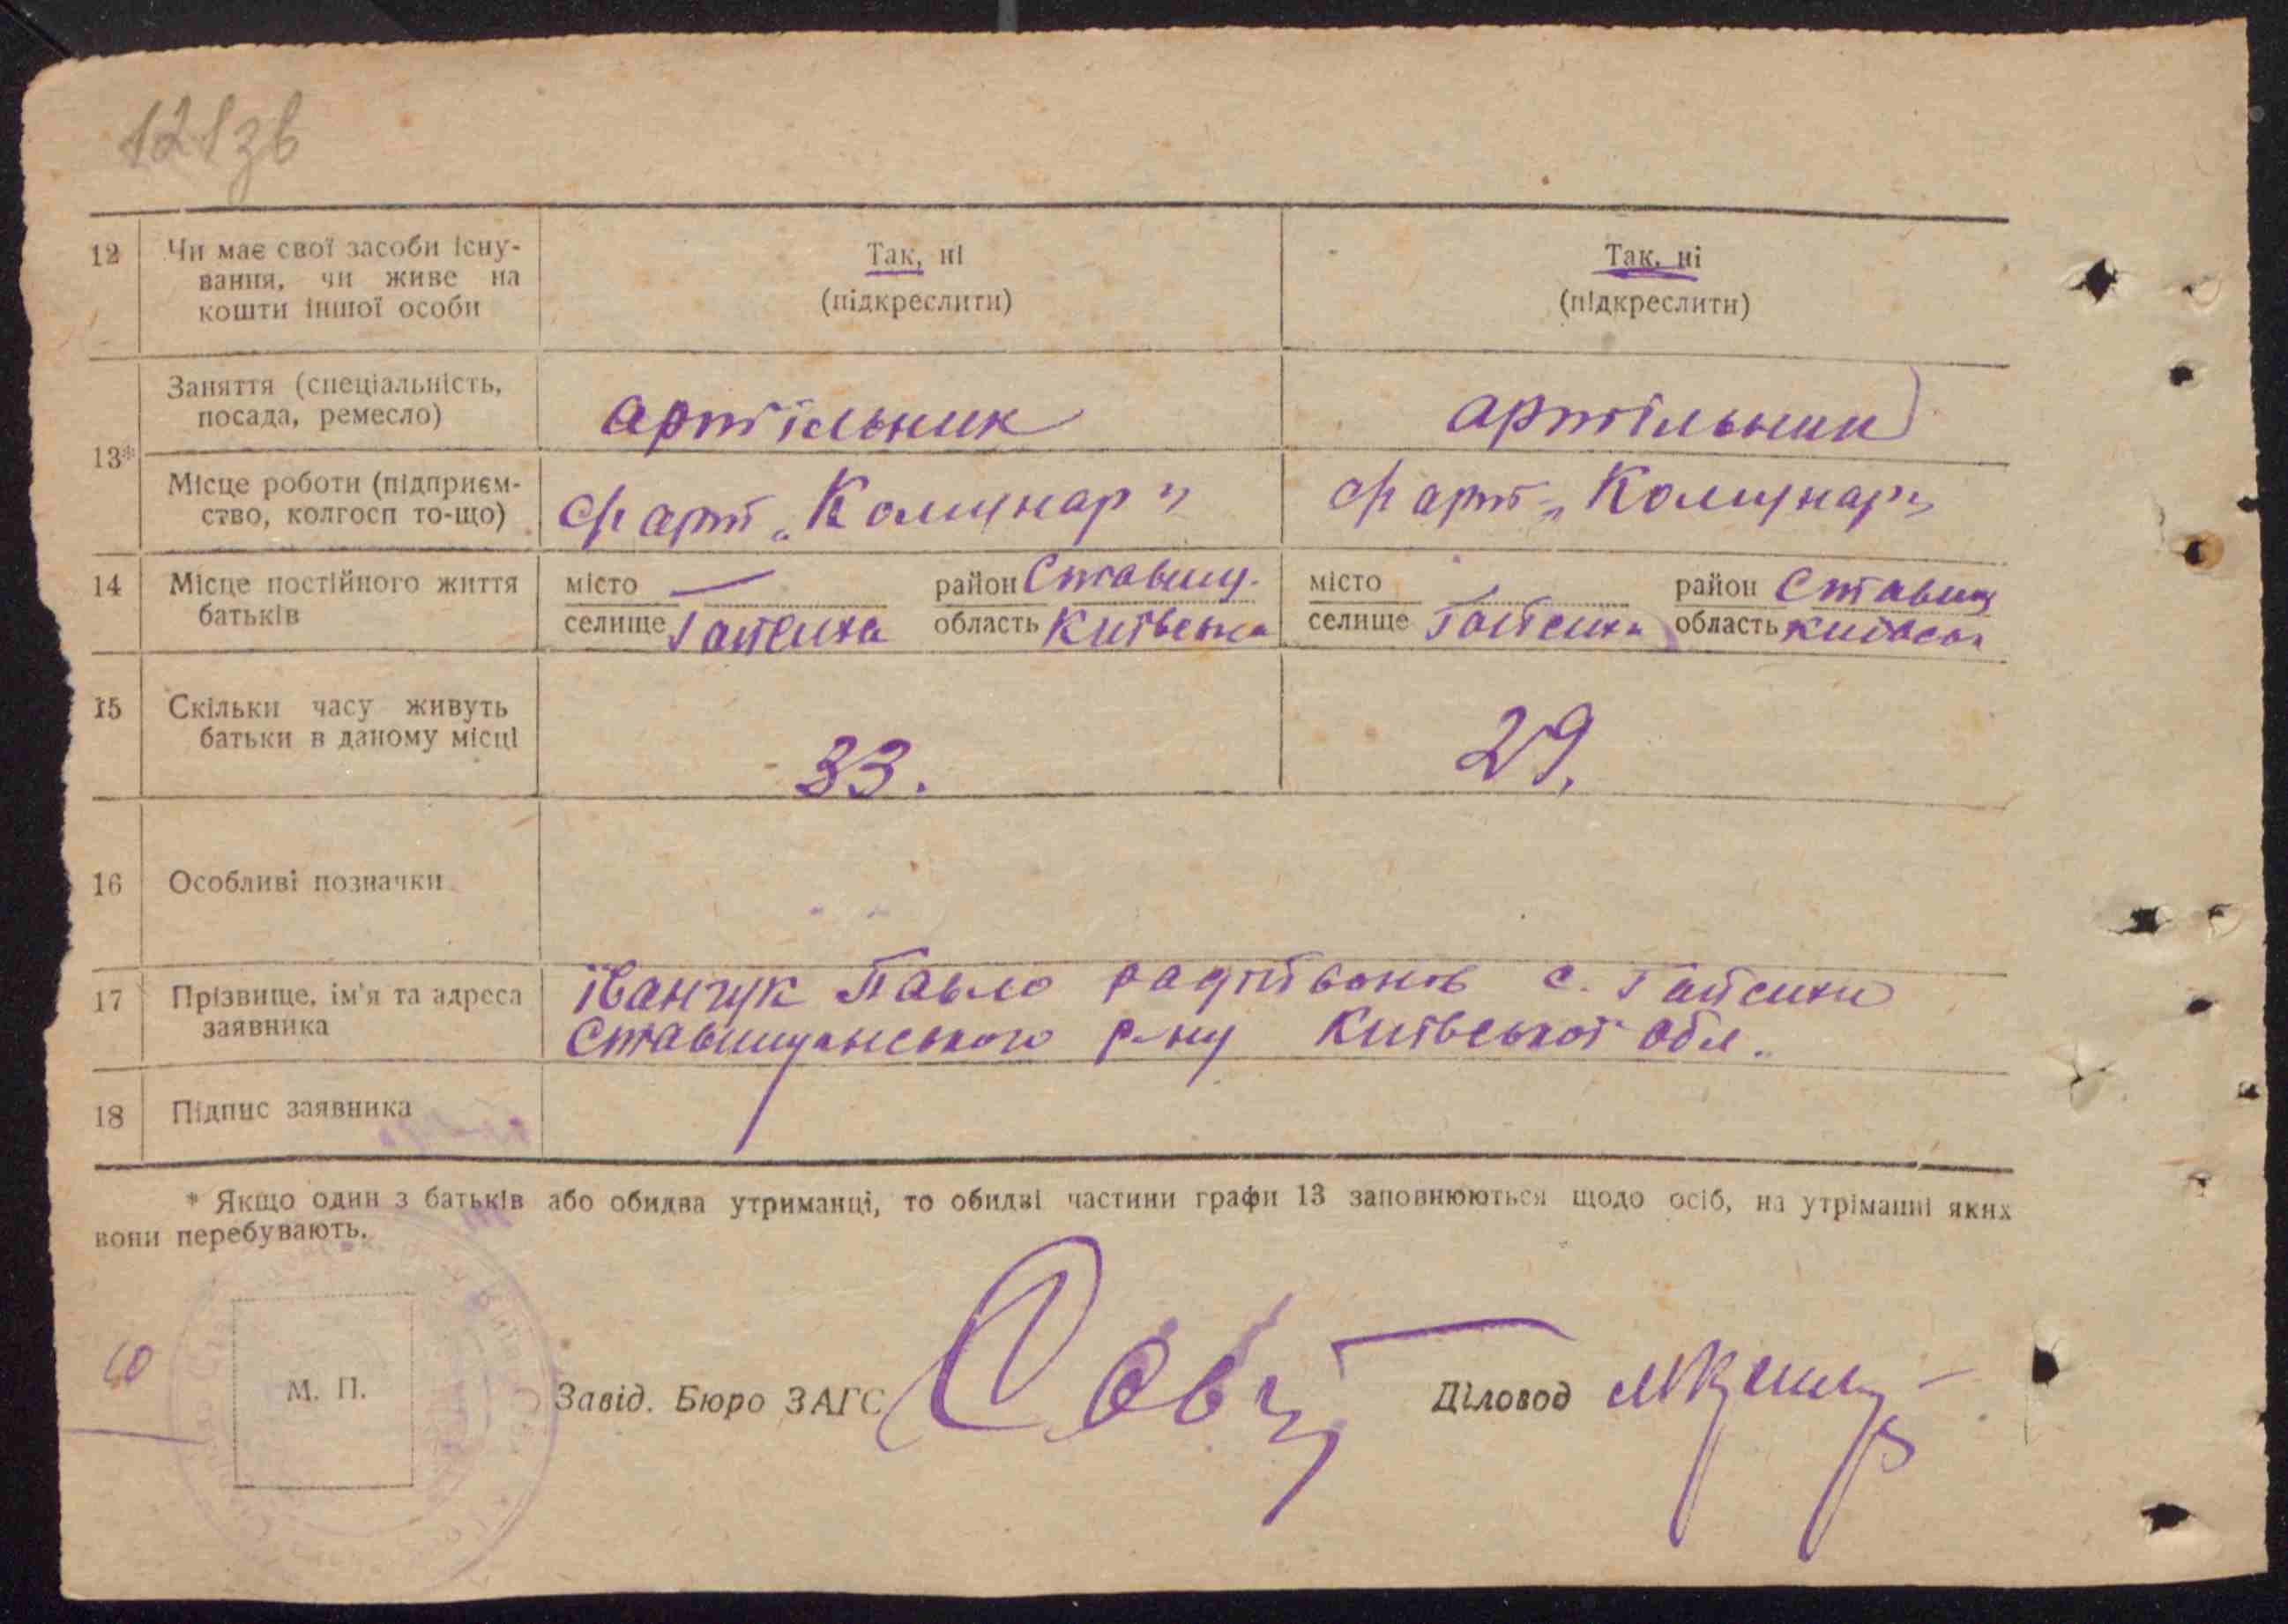 121зв
12 Чи має свої засоби існу-
вання, чи живе на
кошти іншої особи
Так, ні
(підкреслити)
Так, ні
(підкреслити)
13*
Заняття (спеціальність,
посада, ремесло)
артільник
артільник
Місце роботи (підприєм-
ство, колгосп то-що)
с/г арт „Комунар"
с/г арт „Комунар"
14 Місце постійного життя
батьків
місто — район Ставищ.
селище Гайсиха область Київська
місто — район Ставищ
селище Гайсиха область Київська
15 Скільки часу живуть
батьки в даному місці
33.
29.
16 Особливі позначки
17 Прізвище, ім'я та адреса
заявника
Іванчук Павло с. Гайсихи
Ставищанського р-ну Київської обл.
18 Підпис заявника
* Якщо один з батьків або обидва утриманці, то обидві частини графи 13 заповнюються щодо осіб, на утріманні яких
вони перебувають.
М. П.
Завід. Бюро ЗАГС
Діловод